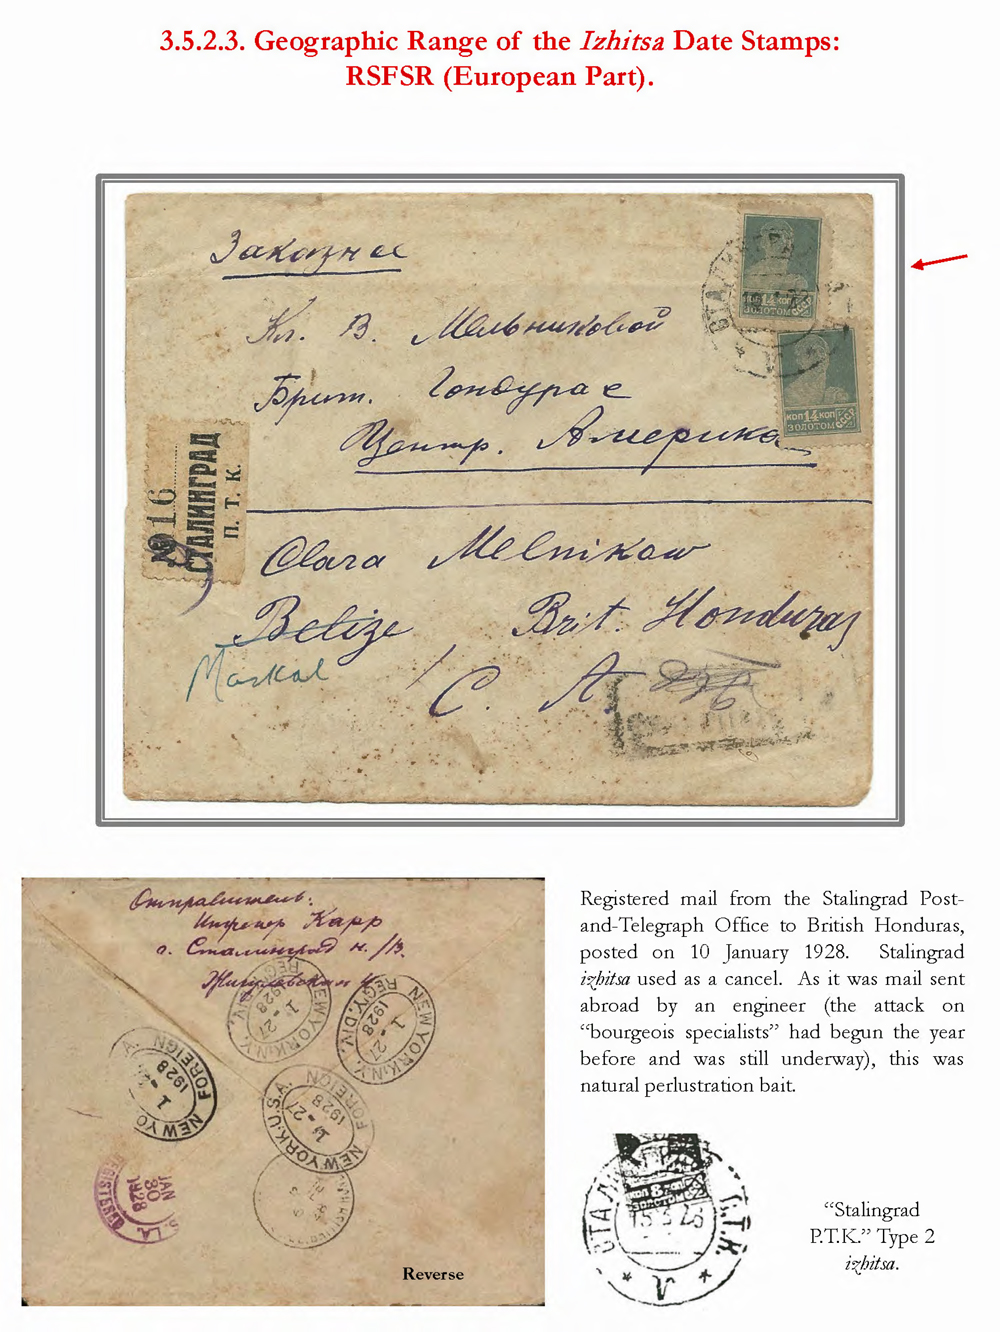 3.5.2.3. Geographic Range of the Izhitsa Date Stamps:
RSFSR (European Part).
Заказное
Кл. В. Мельниковой
Брит. Гондурас
Центр. Америка
КОП 14 КОП
ЗОЛОТОМ
СССР
КОП 14 КОП
ЗОЛОТОМ
СССР
№ 16
СТАЛИНГРАД
П. Т. К.
Clara Melnikow
Belize Brit. Honduras
Maskal
C. A.
Отправитель:
Инженер Карр
г. Сталинград н./В.
NEW YORK, N.Y.
REG'Y. DIV.
1-27
1928
NEW YORK, N.Y.
REG'Y. DIV.
1-27
1928
NEW YO
FOREIGN
1928
NEW YORK, U.S.A.
FOREIGN
1-27
1928
REGISTERED
JAN
30
1928
LA.
Reverse
Registered mail from the Stalingrad Post-
and-Telegraph Office to British Honduras,
posted on 10 January 1928. Stalingrad
izhitsa used as a cancel. As it was mail sent
abroad by an engineer (the attack on
“bourgeois specialists” had begun the year
before and was still underway), this was
natural perlustration bait.
“Stalingrad
P.T.K.” Type 2
izhitsa.